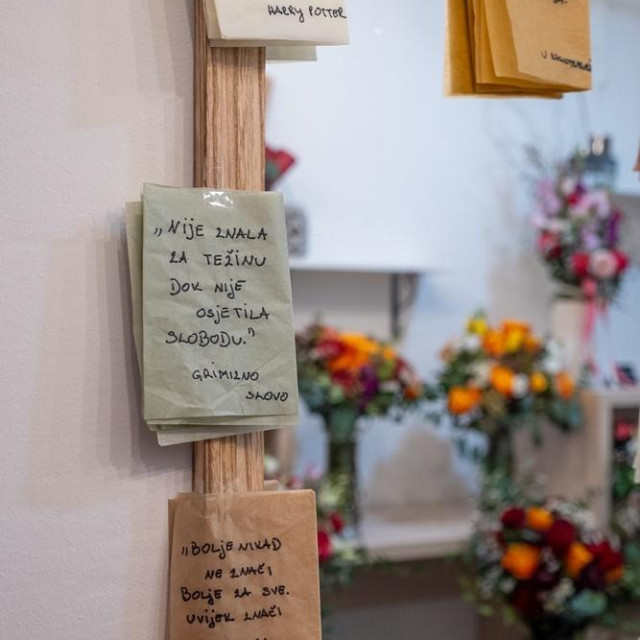 HARRY POTTER
„NIJE ZNALA
ZA TEŽINU
DOK NIJE
OSJETILA
SLOBODU."
GRIMIZNO
SLOVO
„BOLJE NIKAD
NE ZNAČI
BOLJE ZA SVE.
UVIJEK ZNAČI